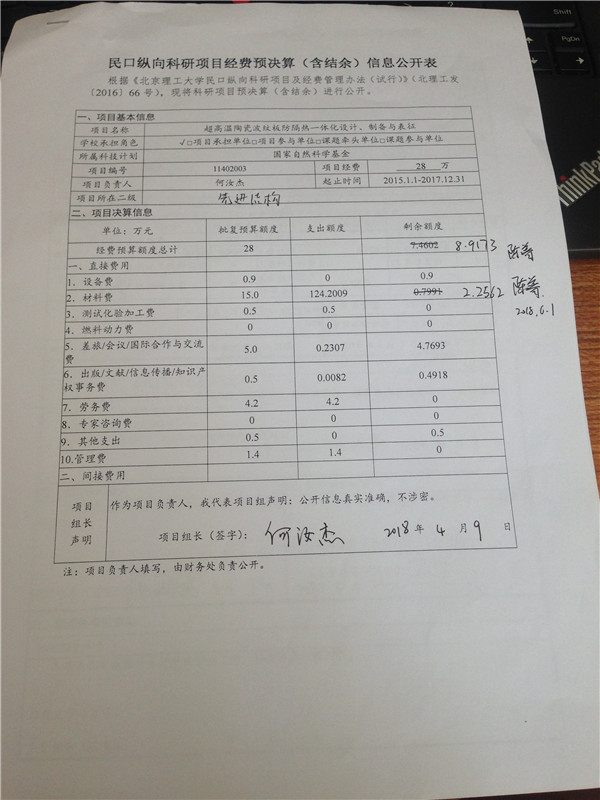 Ctrl
PrtSc
ThinkPad
民口纵向科研项目经费预决算（含结余）信息公开表
根据《北京理工大学民口纵向科研项目及经费管理办法（试行）》（北理工发
〔2016〕66号），现将科研项目预决算（含结余）进行公开。
一、项目基本信息
项目名称 超高温陶瓷波纹板防隔热一体化设计、制备与表征
学校承担角色 √□项目承担单位□项目参与单位□课题牵头单位□课题参与单位
所属科技计划 国家自然科学基金
项目编号 11402003 项目经费 28 万
项目负责人 何汝杰 起止时间 2015.1.1-2017.12.31
项目所在二级 先进结构
二、项目决算信息
单位：万元 批复预算额度 支出额度 剩余额度
经费预算额度总计 28 7.4602 8.9173
一、直接费用
1．设备费 0.9 0 0.9
2．材料费 15.0 124.2009 0.7991 2.2562
3．测试化验加工费 0.5 0.5 0 2018.6.1
4．燃料动力费 0 0 0
5．差旅/会议/国际合作与交流 5.0 0.2307 4.7693
费
6．出版/文献/信息传播/知识产 0.5 0.0082 0.4918
权事务费
7．劳务费 4.2 4.2 0
8．专家咨询费 0 0 0
9．其他支出 0.5 0 0.5
10.管理费 1.4 1.4 0
二、间接费用
项目
组长
声明
作为项目负责人，我代表项目组声明：公开信息真实准确，不涉密。
项目组长（签字）： 何汝杰 2018 年 4 月 9 日
注：项目负责人填写，由财务处负责公开。